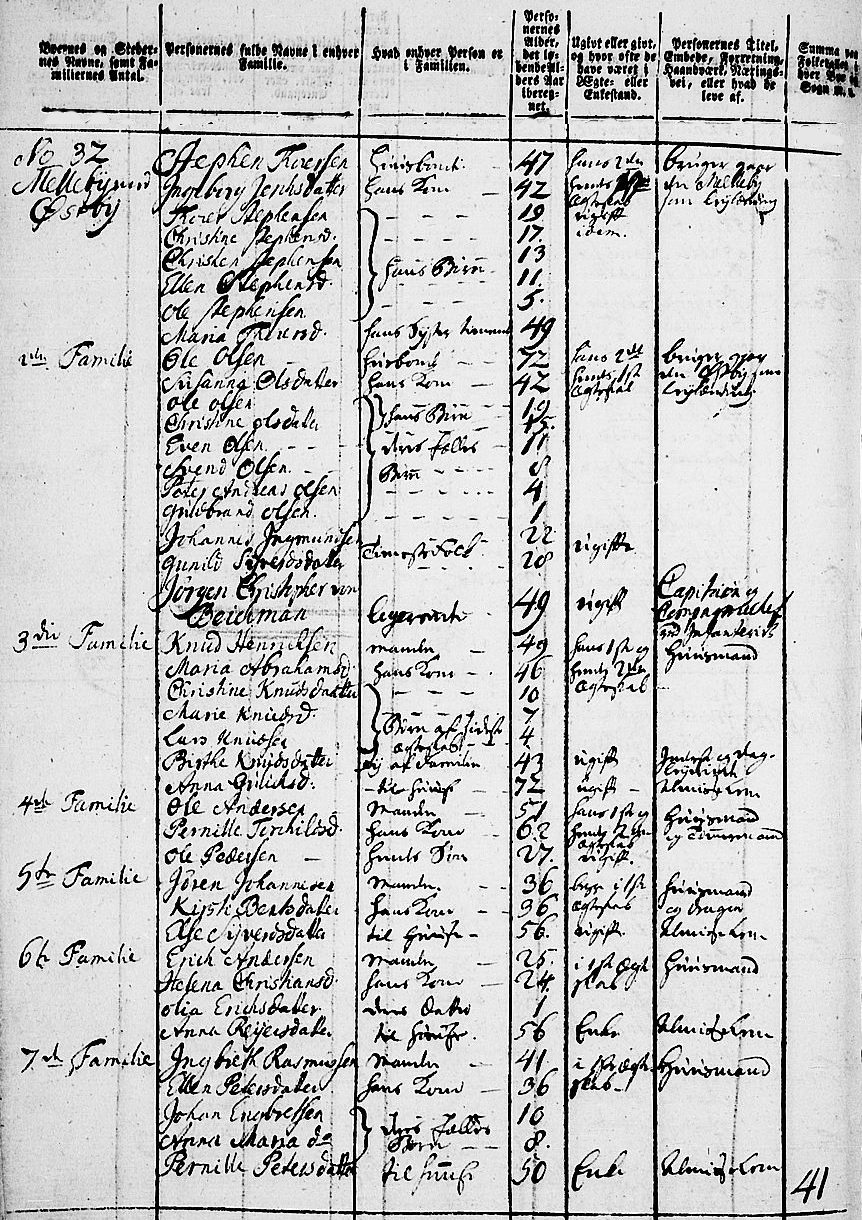 Byernes og Stedernes Navne, samt Familiernes Antal.
Personernes fulde Navne i enhver Familie.
Hvad enhver Person er i Familien.
Personernes Alder, det løbende Alders Aar iberegnet.
Ugivt eller givt, og hvor ofte de have været i Ægte- eller Enkestand.
Personernes Titel, Embede, Forretning, Haandværk, Næringsvei, eller hvad de leve af.
Summa paa Folketallet i
No 32 Stephen Thorersen Huusbond 47 hans 2den bruger gaar
Mellebÿe og Ingeborg Jensdatter hans Kone 42 hendes Ægteskab
Østbÿ Thorer Stephensen 19 ugift
Christine Stephensd. 17 idem.
Christen Stephensen 13
hans Børn
Ellen Stephensd. 11
Ole Stephensen 5.
Maria Thorersd. hans Syster 49
2den Familie Ole Olsen Huusbond 72 hans 2det bruger gaar
Susanna Olsdatter hans Kone 42 hendes 1ste Ægteskab
Ole Olsen 19
hans Børn
Christine Olsdatter 15.
Even Olsen 11 deres fælles
Svend Olsen. 8 Børn
Peter Andreas Olsen 4
Guldbrand Olsen. 1
Johannes Ingmundsen 22
Tienestefolk ugifte
Gunild Sÿversdatter 28
Jörgen Christopher von
Beichman logerende 49 ugift Capitain og
3die Familie Knud Henrichsen manden 49 hans 1ste og Huusmand
Maria Abrahamsd. hans Kone 46 hendes 2det Ægteskab
Christine Knudsdatter 10
Marie Knudsd. 7 Børn af
Lars Knudsen 4 Ægteskab
Birthe Knudsdatter 43 ugift
Anna Gulichsd. til Huuse 72 ugift Almisselem
4de Familie Ole Andersen Manden 51 hans 1ste og Huusmand
Pernille Terchilsd. hans Kone 62 hendes 2det Ægteskab og Tømmermand
Ole Pedersen hendes Søn 27. ugift.
5te Familie Jören Johannesen Manden 36 begge i 1ste Huusmand
Kirsti Bentsdatter hans Kone 36 Ægteskab og dragon
Else Sÿversdatter til Huuse 56. ugift Almisselem
6te Familie Erich Andersen Manden 25. i 1ste Ægteskab Huusmand
Helena Christiansd. hans Kone 24.
Olia Erichsdatter deres datter 1
Anna Reÿersdatter til Huuse. 56 Enke Almisselem
7de Familie Ingbreth Rasmussen Manden 41. i 1ste Ægteskab Huusmand
Ellen Petersdatter hans Kone 36
Johan Engbretsen 10
deres fælles Børn
Anna Maria do 8.
Pernille Petersdatter til Huuse 50 Enke Almisselem
41